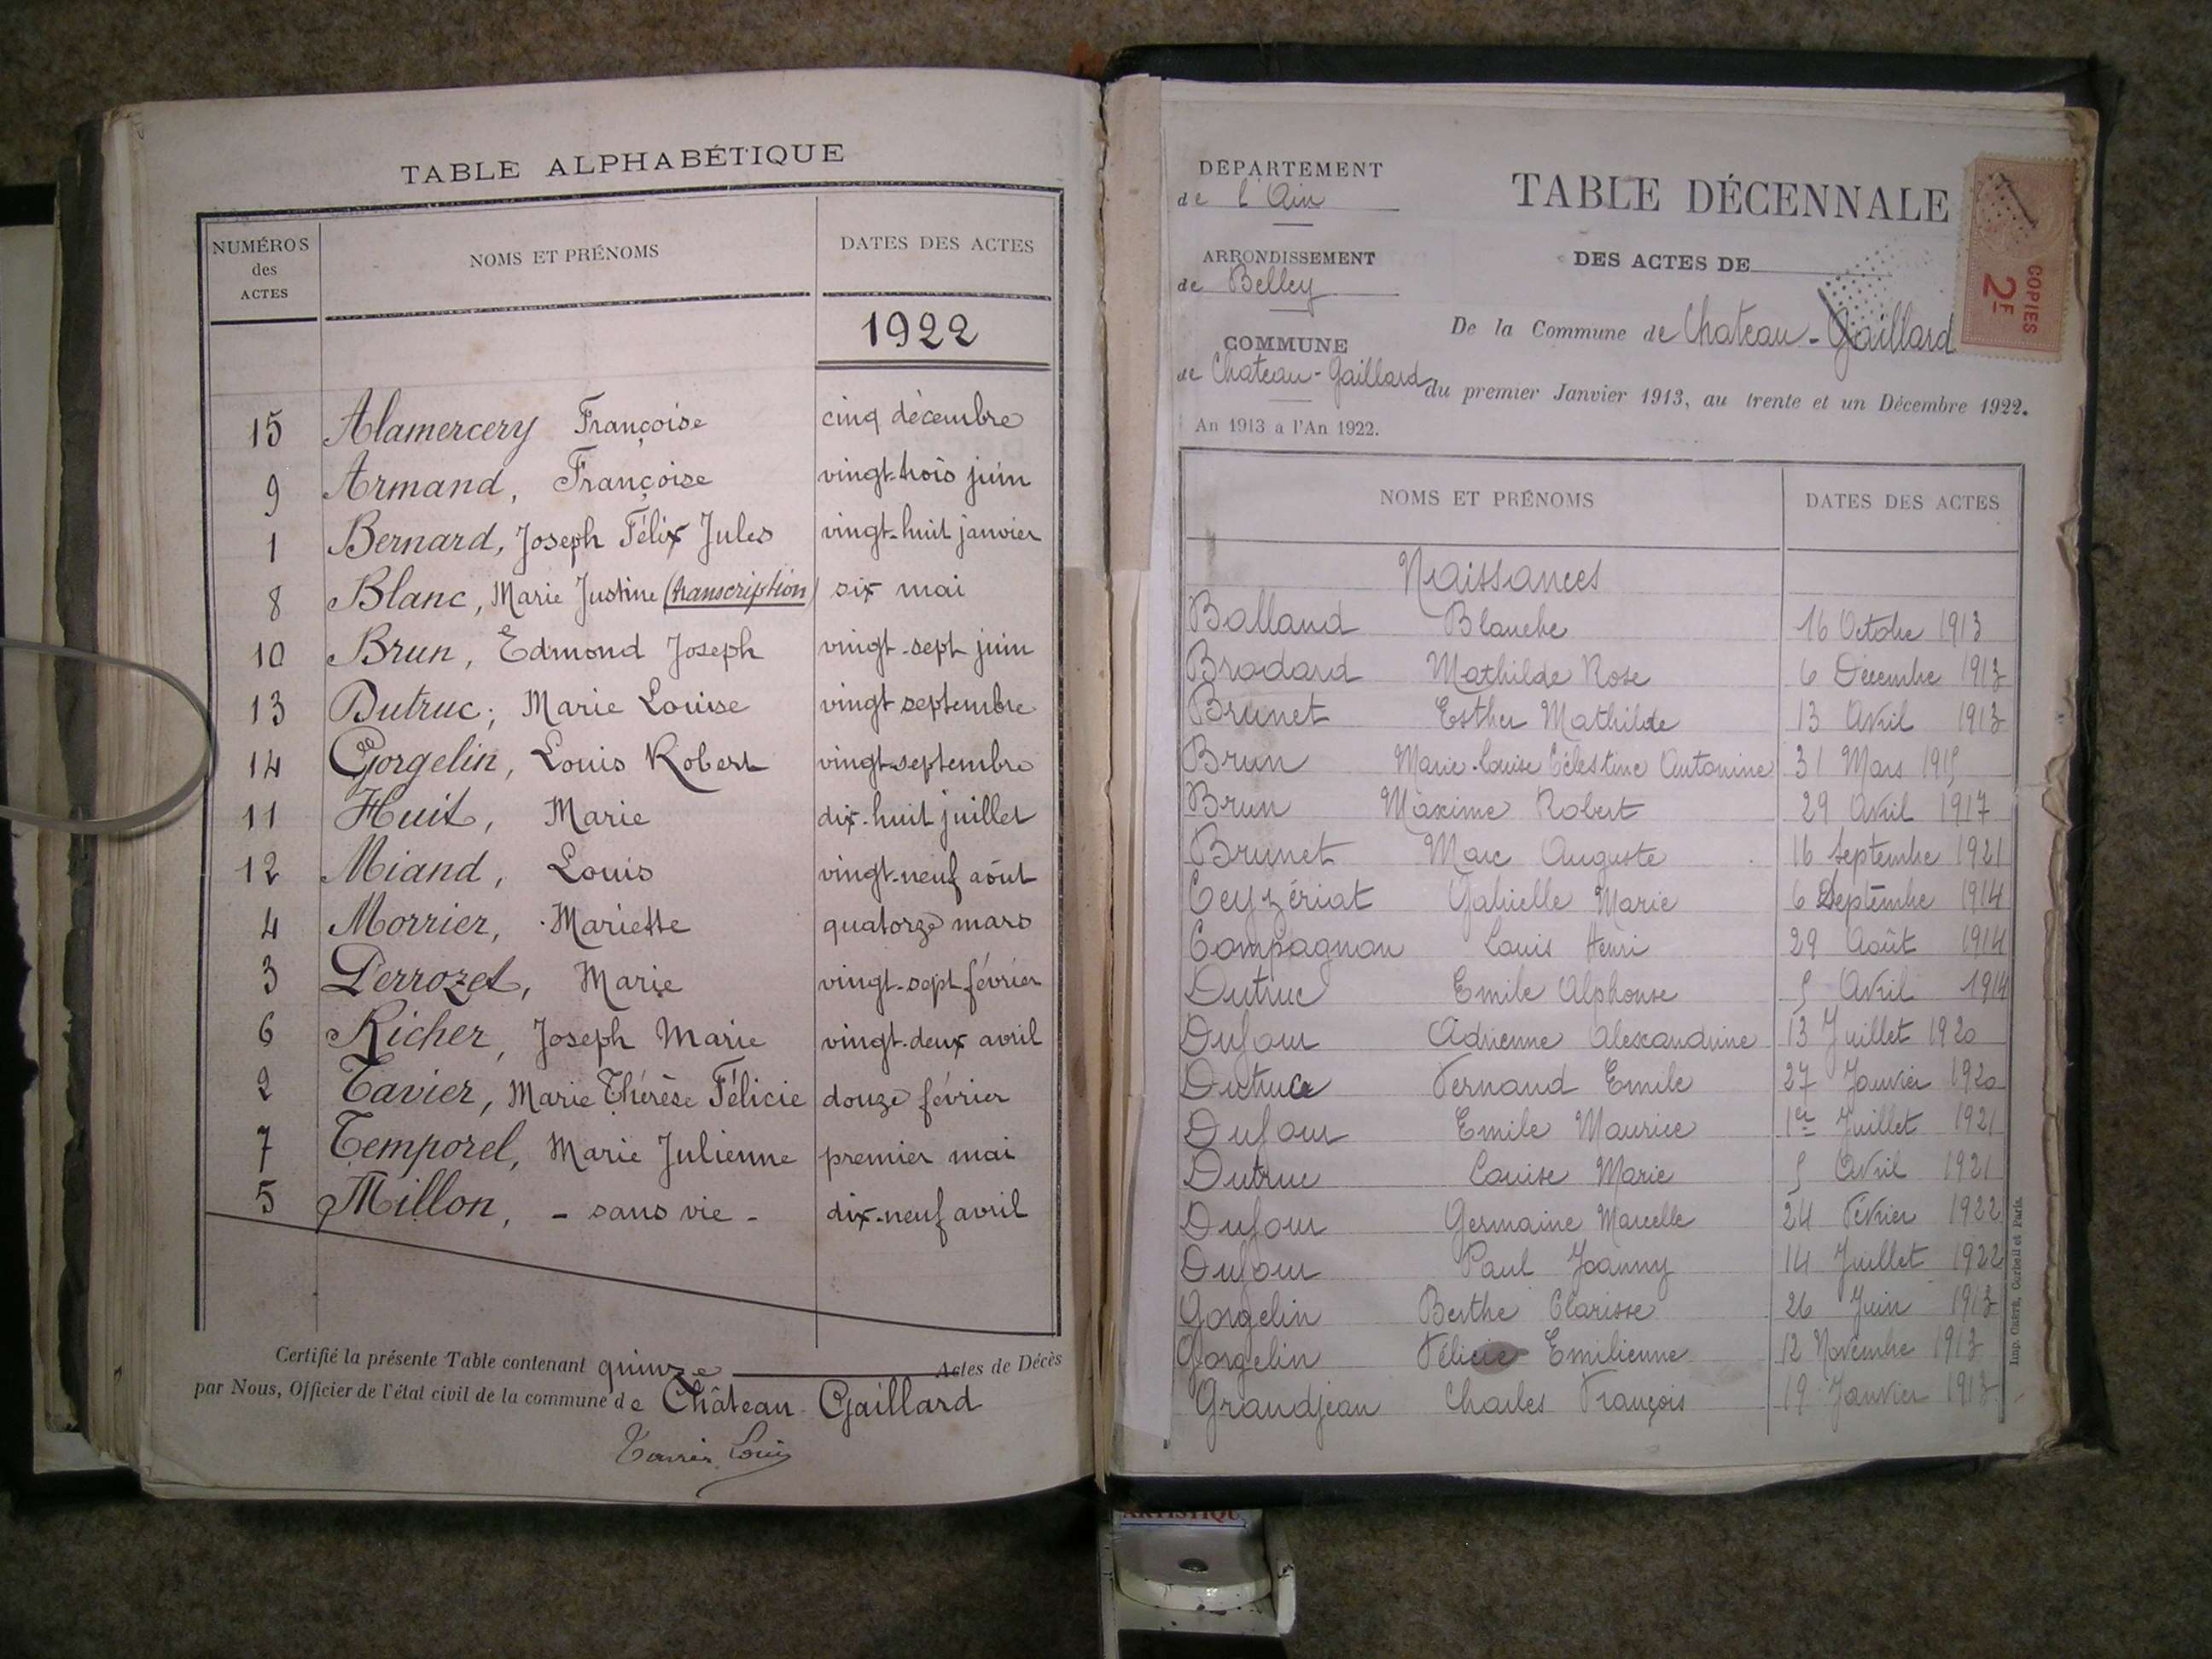 TABLE ALPHABÉTIQUE
NUMÉROS des ACTES NOMS ET PRÉNOMS DATES DES ACTES
1922
15 Alamercery Françoise cinq décembre
9 Armand, Françoise vingt-trois juin
1 Bernard, Joseph Félix Jules vingt-huit janvier
8 Blanc, Marie Justine (transcription) six mai
10 Brun, Edmond Joseph vingt-sept juin
13 Dutruc; Marie Louise vingt septembre
14 Gorgelin, Louis Robert vingt-septembre
11 Huit, Marie dix-huit juillet
12 Miand, Louis vingt-neuf août
4 Morrier, Mariette quatorze mars
3 Perrozet, Marie vingt-sept février
6 Richer, Joseph Marie vingt-deux avril
2 Tavier, Marie Thérèse Félicie douze février
7 Temporel, Marie Julienne premier mai
5 Millon, - sans vie - dix-neuf avril
Certifié la présente Table contenant quinze Actes de Décès
par Nous, Officier de l'état civil de la commune de Château-Gaillard
Louis
DÉPARTEMENT
de l'Ain
ARRONDISSEMENT
de Belley
COMMUNE
de Chateau-Gaillard
An 1913 à l'An 1922.
TABLE DÉCENNALE
DES ACTES DE
De la Commune de Chateau-Gaillard
du premier Janvier 1913, au trente et un Décembre 1922.
COPIES
2F
NOMS ET PRÉNOMS DATES DES ACTES
Naissances
Balland Blanche 16 Octobre 1913
Brodard Mathilde Rose 6 Décembre 1913
Brunet Esther Mathilde 13 Avril 1913
Brun Marie-Louise Célestine Antonine 31 Mars 1915
Brun Maxime Robert 29 Avril 1917
Brunet Marc Auguste 16 Septembre 1921
Ceyzériat Gabrielle Marie 6 Septembre 1914
Compagnon Louis Henri 29 Août 1914
Dutruc Emile Alphonse 5 Avril 1914
Dufour Adrienne Alexandrine 13 Juillet 1920
Dutruc Fernand Emile 27 Janvier 1920
Dufour Emile Maurice 1er Juillet 1921
Dutruc Louise Marie 5 Avril 1921
Dufour Germaine Marcelle 24 Février 1922
Dufour Paul Joanny 14 Juillet 1922
Gorgelin Berthe Clarisse 26 Juin 1913
Gorgelin Félicie Emilienne 12 Novembre 1913
Grandjean Charles François 19 Janvier 1913
Imp. Corbeil et Paris.
ARTISTIQU